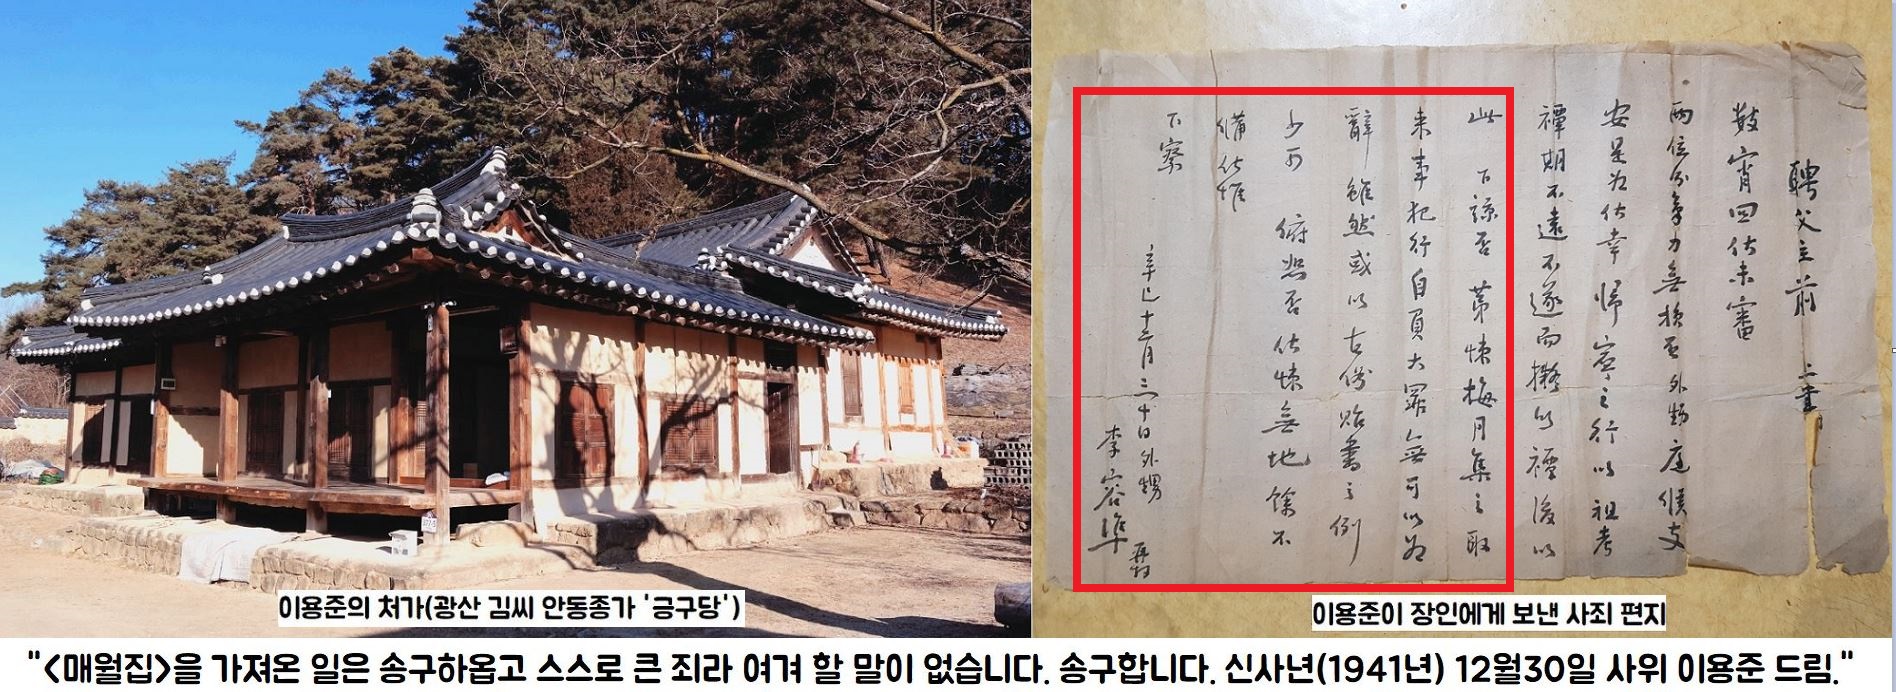 이용준의 처가(광산 김씨 안동종가 '긍구당')
聘父主前 上書
宵回伏未審
兩位分氣力無損否外甥庭候支
安是为伏幸 歸寧之行以祖考
禫期不遠不遂而擬以禫後以
此 下諒否 第悚梅月集之取
来事犯行自負大罪無可以为
辭 雖然或以古俗貽書之例
少可 俯恕否伏悚無地餘不
備伏惟
下察
辛巳十二月三十日外甥
李容準 再拜
이용준이 장인에게 보낸 사죄 편지
"<매월집>을 가져온 일은 송구하옵고 스스로 큰 죄라 여겨 할 말이 없습니다. 송구합니다. 신사년(1941년) 12월30일 사위 이용준 드림."